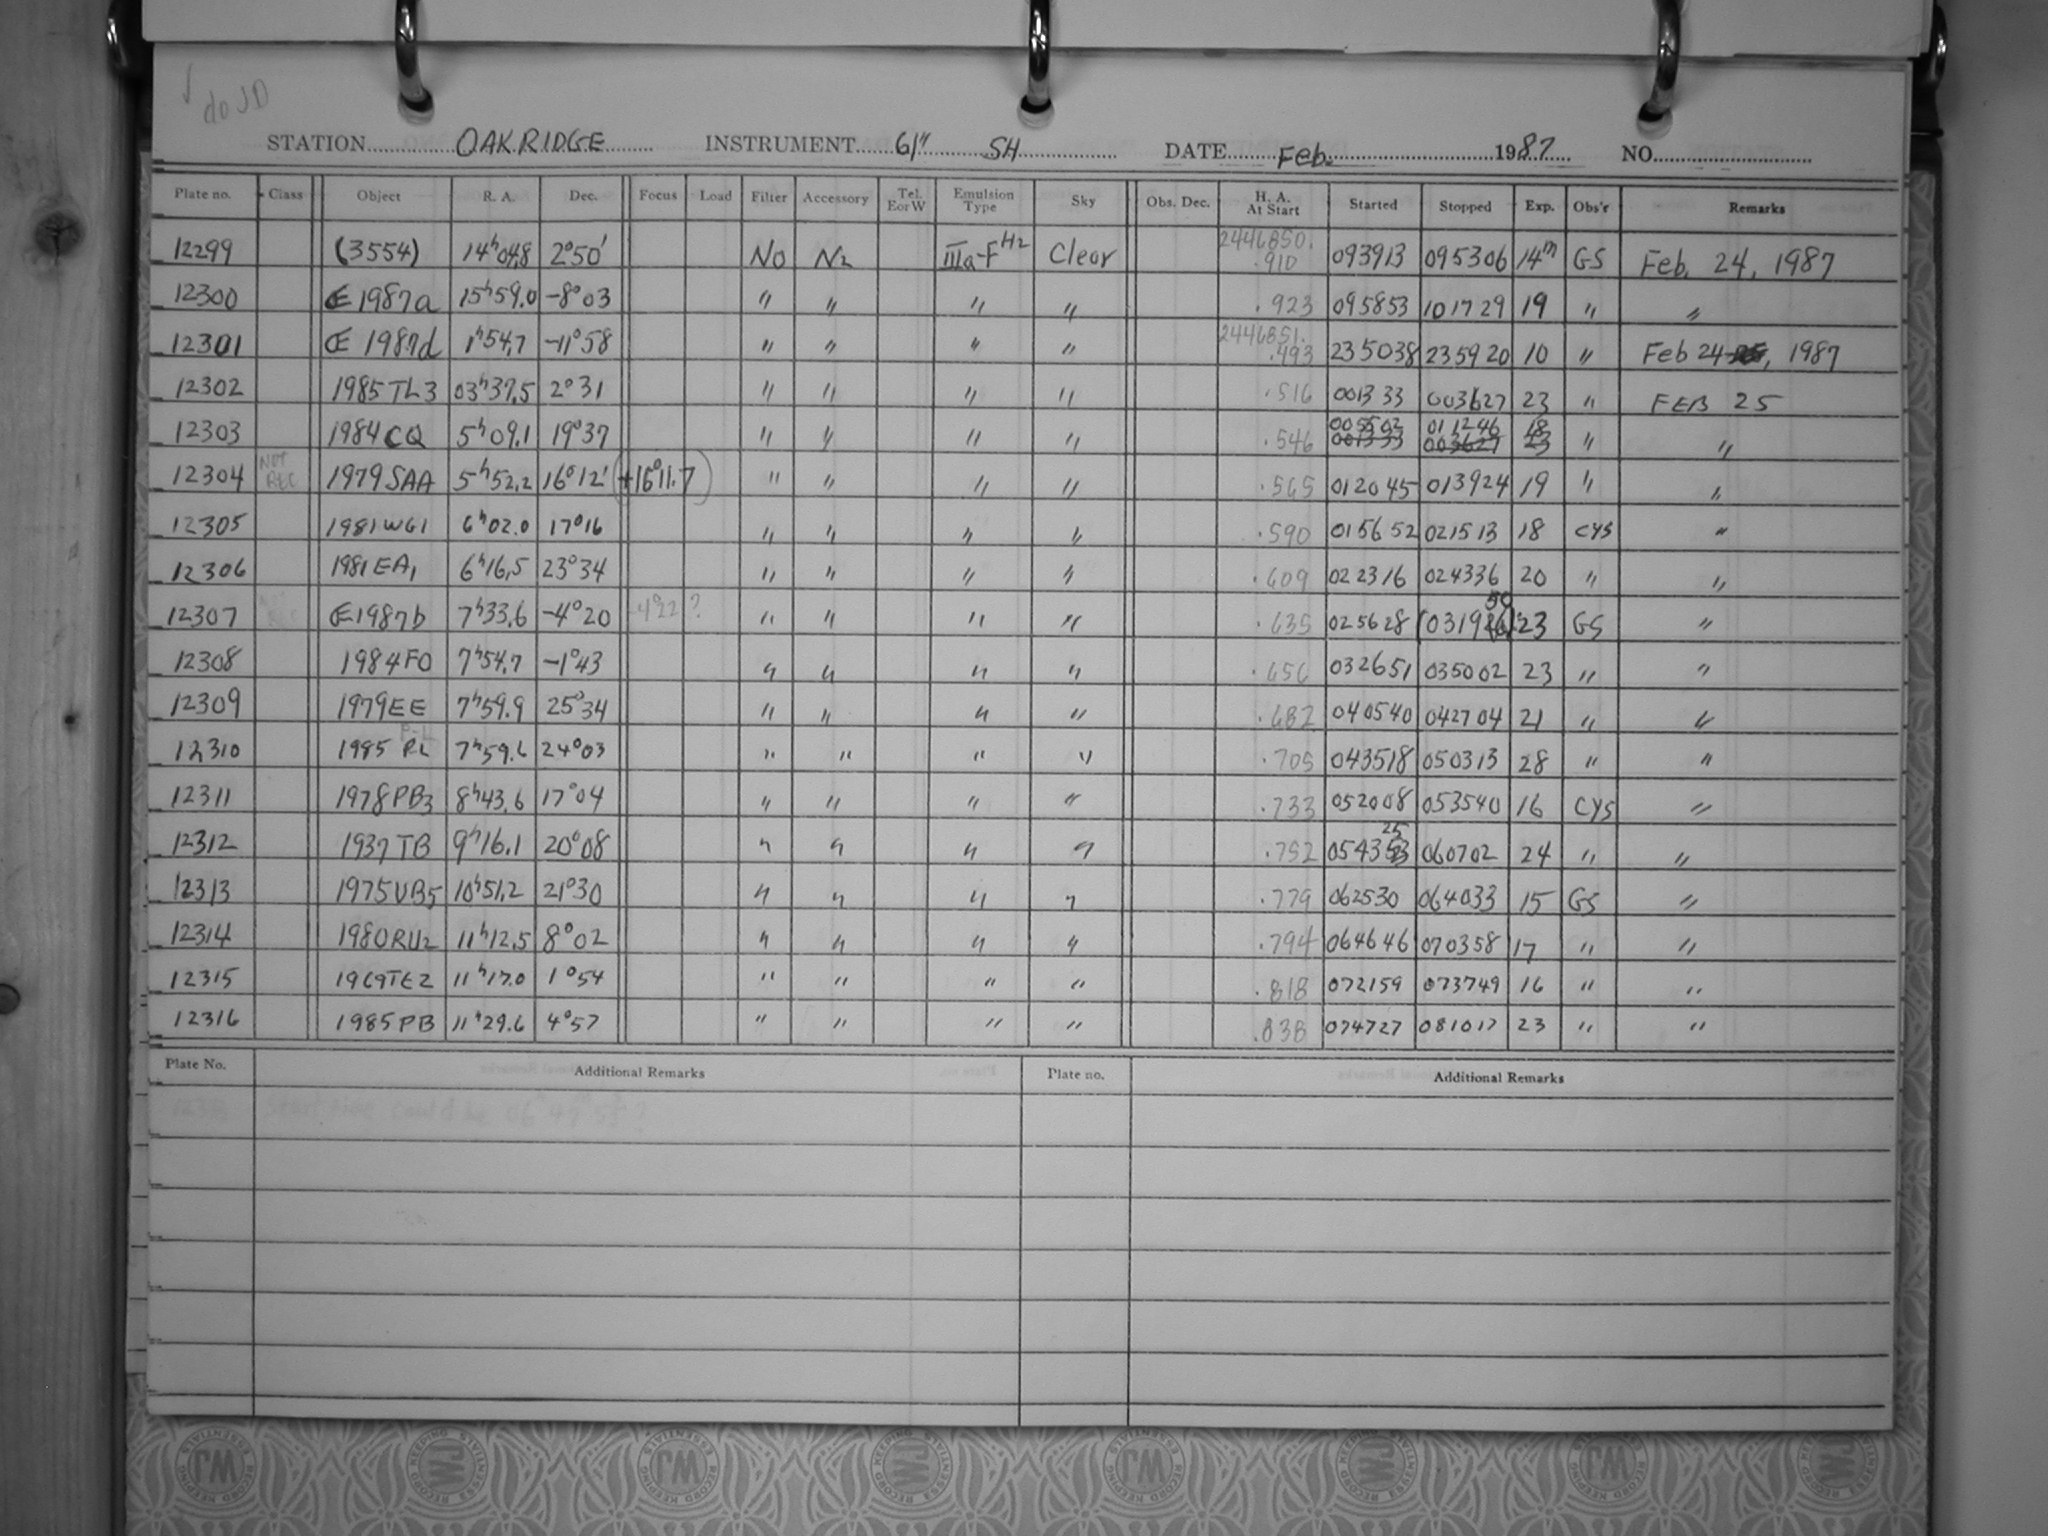 ↓ do JD
STATION OAK RIDGE INSTRUMENT 61" SH DATE Feb. 1987 NO.
Plate no. Class Object R. A. Dec. Focus Load Filter Accessory Tel. E or W Emulsion Type Sky Obs. Dec. H. A. At Start Started Stopped Exp. Obs'r Remarks
12299 (3554) 14h04.8 2°50' No N2 IIIa-F H2 Clear 2446850. .910 093913 095306 14m GS Feb. 24, 1987
12300 1987a 15h59.0 -8°03 " " " " .923 095853 101729 19 " "
12301 1987d 1h54.7 -11°58 " " " " 2446851. .493 235038 235920 10 " Feb 24, 1987
12302 1985TL3 03h37.5 2°31 " " " " .516 001333 003627 23 " FEB 25
12303 1984CQ 5h09.1 19°37 " " " " .546 005502 001333 011246 003627 18 23 " "
12304 NOT REC 1979SAA 5h52.2 16°12' (+16°11.7) " " " " .565 012045 013924 19 " "
12305 1981WG1 6h02.0 17°16 " " " " .590 015652 021513 18 CYS "
12306 1981EA1 6h16.5 23°34 " " " " .609 022316 024336 20 " "
12307 1987b 7h33.6 -4°20 -4°22 ? " " " " .635 025628 (0319 50 23 GS "
12308 1984FO 7h54.7 -1°43 " " " " .656 032651 035002 23 " "
12309 1979EE 7h59.9 25°34 " " " " .682 040540 042704 21 " "
12310 1985 RL P-L 7h59.6 24°03 " " " " .705 043518 050313 28 " "
12311 1978PB3 8h43.6 17°04 " " " " .733 052008 053540 16 CYS "
12312 1937TB 9h16.1 20°08 " " " " .752 0543 25 060702 24 " "
12313 1975UB5 10h51.2 21°30 " " " " .779 062530 064033 15 GS "
12314 1980RU2 11h12.5 8°02 " " " " .794 064646 070358 17 " "
12315 1969TE2 11h17.0 1°54 " " " " .818 072159 073749 16 " "
12316 1985PB 11h29.6 4°57 " " " " .838 074727 081017 23 " "
Plate No. Additional Remarks Plate no. Additional Remarks
start time could be 06h 47m ?
JM RECORD KEEPING ESSENTIALS